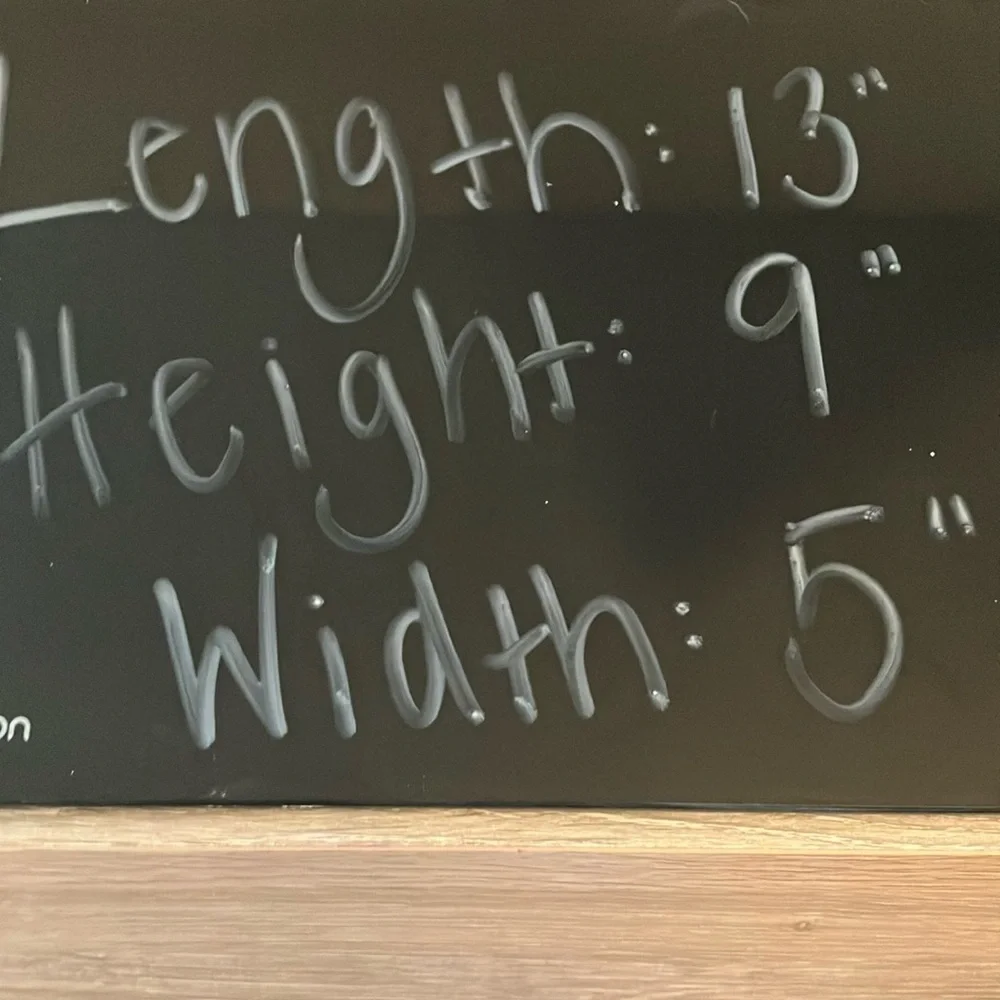 Length: 13"
Height: 9"
Width: 5"